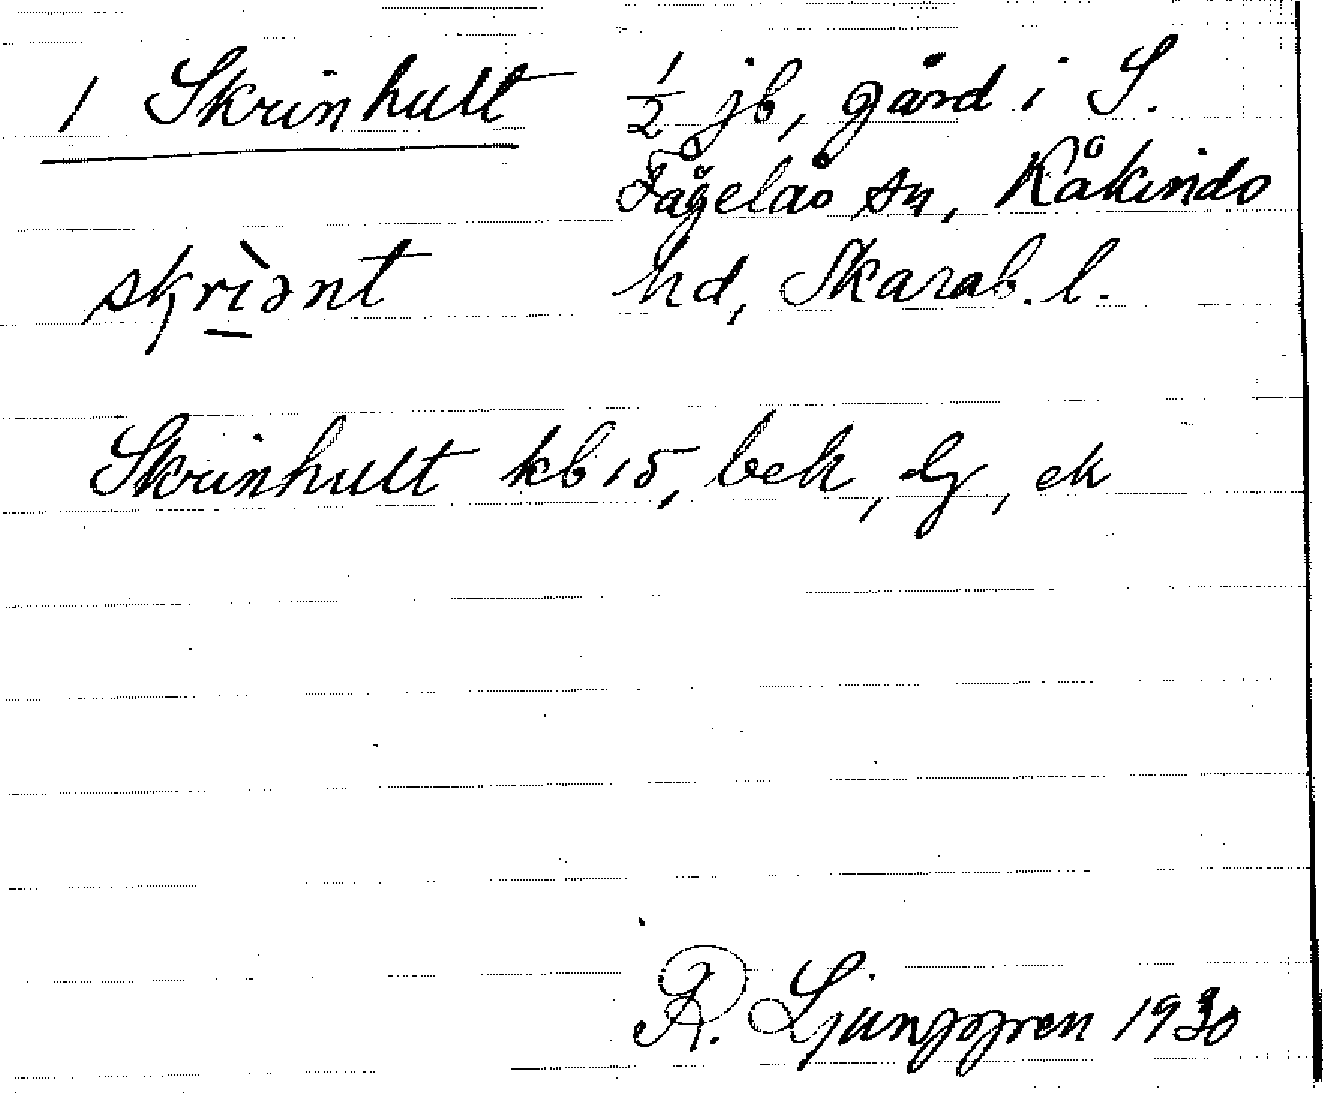 1 Skrinhult ½ jb, gård i S.
Fågelås sn, Kåkinds
skrìənt hd, Skarab. l.
Skrinhult kb 15, bek, lg, ek
R. Ljunggren 1930